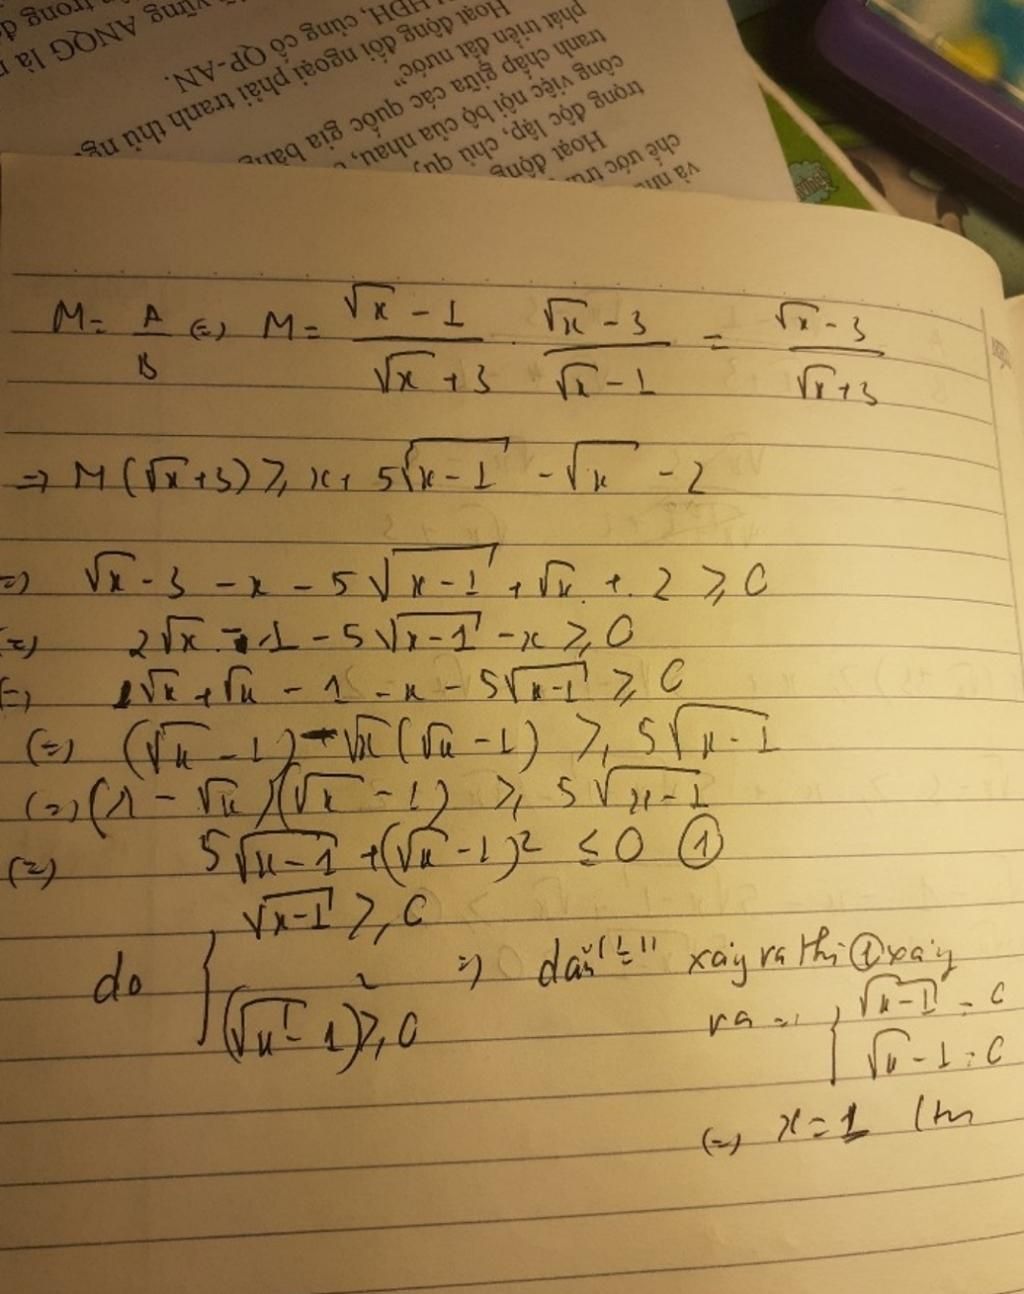 M = A/B (=) M = (√x - 1)/(√x + 3) . (√x - 3)/(√x - 1) = (√x - 3)/(√x + 3)
=) M(√x + 3) ≥ x + 5√(x-1) - √x - 2
=) √x - 3 - x - 5√(x-1) + √x + 2 ≥ 0
(=) 2√x - 1 - 5√(x-1) - x ≥ 0
(=) √x + √x - 1 - x - 5√(x-1) ≥ 0
(=) (√x - 1) - √x(√x - 1) ≥ 5√(x-1)
(=) (1 - √x)(√x - 1) ≥ 5√(x-1)
(=) 5√(x-1) + (√x - 1)² ≤ 0 ①
do { √(x-1) ≥ 0
(√x - 1)² ≥ 0
=) dấu "=" xảy ra thì ① xảy
ra =) { √(x-1) = 0
√x - 1 = 0
(=) x = 1 (tm
và
chế ước
Hoạt động
trong độc lập, chủ
công việc nội bộ của nhau,
tranh chấp giữa các quốc gia bằng
phát triển đất nước"
Hoạt động đối ngoại phải tranh thủ
HĐH, củng cố QP-AN.
vững ANQG là
trong